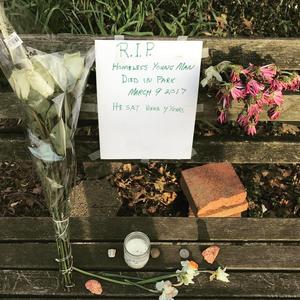 R.I.P.
HOMELESS YOUNG MAN
DIED IN PARK
MARCH 9 2017
HE SAT HERE 4 YEARS